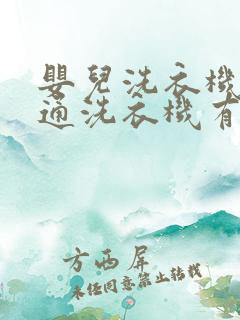 嬰兒洗衣機
通洗衣機有
方西屏
未經同意禁止轉載